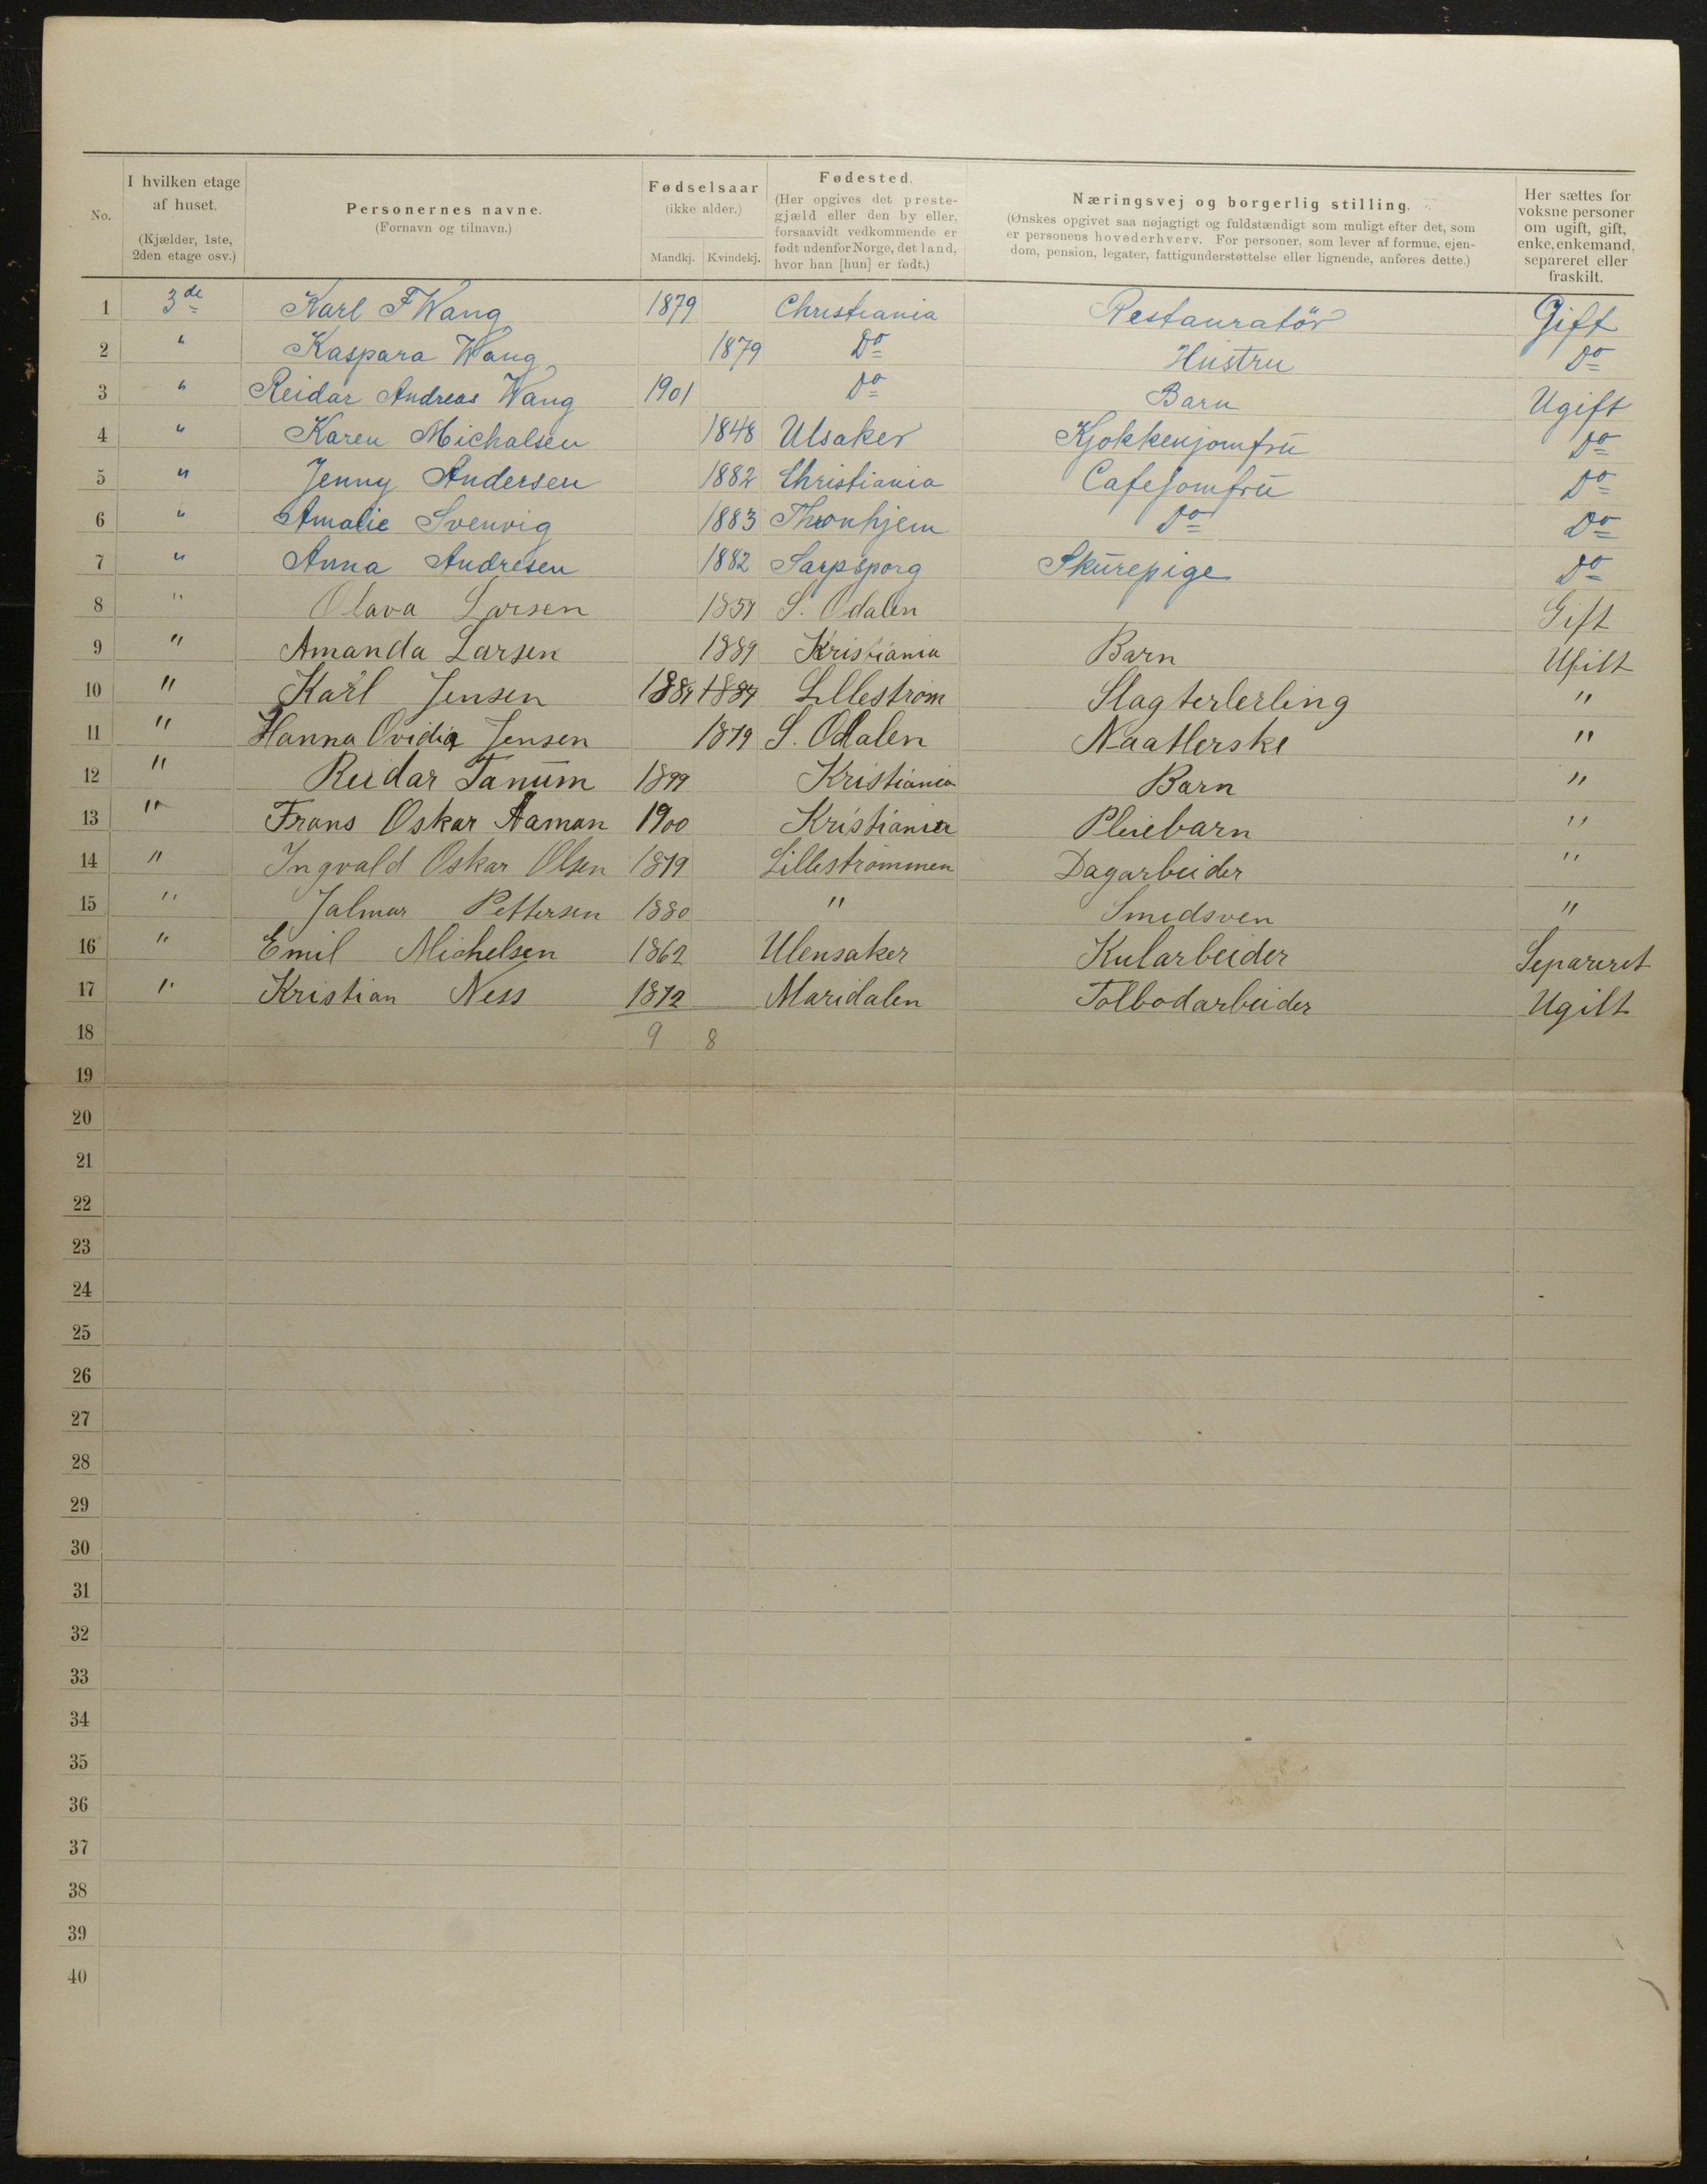 No.
I hvilken etage
af huset.
(Kjælder, 1ste,
2den etage osv.)
Personernes navne.
(Fornavn og tilnavn.)
Fødselsaar
(ikke alder.)
Mandkj. Kvindekj.
Fødested.
(Her opgives det preste-
gjæld eller den by eller,
forsaavidt vedkommende er
født udenfor Norge, det land,
hvor han [hun] er født.)
Næringsvej og borgerlig stilling.
(Ønskes opgivet saa nøjagtigt og fuldstændigt som muligt efter det, som
er personens hovederhverv. For personer, som lever af formue, ejen-
dom, pension, legater, fattigunderstøttelse eller lignende, anføres dette.)
Her sættes for
voksne personer
om ugift, gift,
enke, enkemand,
separeret eller
fraskilt.
1 3de Karl F Wang 1879 Christiania Restauratör Gift
2 " Kaspara Wang 1879 Do Hustru Do
3 " Reidar Andreas Wang 1901 Do Barn Ugift
4 " Karen Michalsen 1848 Ulsaker Kjokkenjomfru Do
5 " Jenny Andersen 1882 Christiania Cafejomfru Do
6 " Amalie Svenvig 1883 Thronhjem Do Do
7 " Anna Andresen 1882 Sarpsporg Skurepige Do
8 " Olava Larsen S. Odalen Gift
9 " Amanda Larsen 1889 Kristiania Barn
10 " Karl Jensen Lillestrøm Slagterlerling "
11 " Hanna Ovidia Jensen 1879 S. Odalen Naatlerske "
12 " Reidar Tanum 1899 Kristiania Barn "
13 " Frans Oskar Aaman 1900 Kristiania Pleiebarn "
14 " Ingvald Oskar Olsen 1879 Lillestrømmen Dagarbeider "
15 " Jalmar Pettersen 1880 " Smedsven "
16 " Emil Michelsen 1862 Ulensaker Kularbeider Separeret
17 " Kristian Ness 1872 Maridalen Tolbodarbeider Ugilt
18 9 8
19
20
21
22
23
24
25
26
27
28
29
30
31
32
33
34
35
36
37
38
39
40